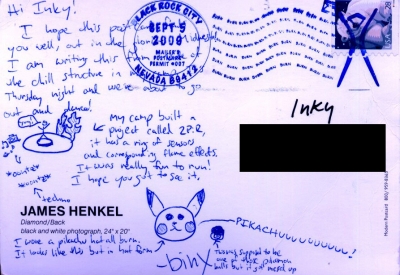 Hi Inky!
I hope this post finds
you well, out in the
I am writing this
the chill structure in
Thursday night and we're about to go
out and dance!
My camp built a
project called 2πR,
it has a ring of sensors
and corresponding flame effects.
It was really fun to run!
I hope you got to see it.
*pounce*
*pounce*
techno
BLACK ROCK CITY
SEPT 5
2009
MAILER'S
POSTMARK
PERMIT #007
NEVADA 89412
Inky
JAMES HENKEL
Diamond/Back
black and white photograph, 24" x 20"
I wore a pikachu hat all burn.
It looks like this but in hat form
PIKACHUUUUUUUUU!
-binx
This was supposed to be
one of those pokemon
balls but it got messed up
Modern Postcard